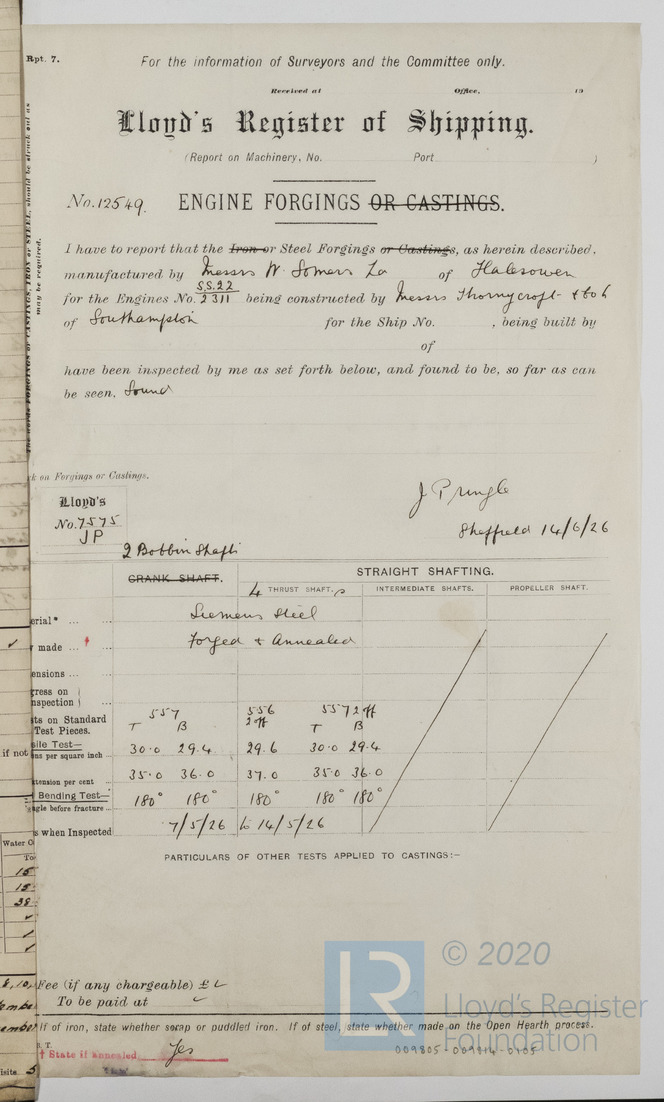 Rpt. 7.
For the information of Surveyors and the Committee only.
Received at Office, 19
Lloyd's Register of Shipping.
(Report on Machinery, No. Port )
No. 12549. ENGINE FORGINGS OR CASTINGS.
I have to report that the Iron or Steel Forgings or Castings, as herein described,
manufactured by Messrs W. Somers Ld of Halesowen
S.S. 22
for the Engines No. 2311 being constructed by Messrs Thornycroft & Co Ld
of Southampton for the Ship No. , being built by
of
have been inspected by me as set forth below, and found to be, so far as can
be seen, Sound
may be required.
k on Forgings or Castings.
Lloyd's
No. 7575
JP
J Pringle
Sheffield 14/6/26
2 Bobbin Shafts
CRANK SHAFT. STRAIGHT SHAFTING.
4 THRUST SHAFT.s INTERMEDIATE SHAFTS. PROPELLER SHAFT.
erial* ... ... Siemens Steel
made ... † ... Forged & Annealed
ensions ... ...
gress on
nspection
sts on Standard 557 556 557 2 off
Test Pieces. T B 2 off T B
if not
sile Test—
ons per square inch ... 30.0 29.4 29.6 30.0 29.4
xtension per cent ... 35.0 36.0 37.0 35.0 36.0
Bending Test—
ngle before fracture ... 180° 180° 180° 180° 180°
s when Inspected 7/5/26 to 14/5/26
Water
To
15
15
38
PARTICULARS OF OTHER TESTS APPLIED TO CASTINGS:—
© 2020
Lloyd's Register
Foundation
LR
Fee (if any chargeable) £
To be paid at
If of iron, state whether scrap or puddled iron. If of steel, state whether made on the Open Hearth process.
† State if annealed Yes
009805-009814-0105